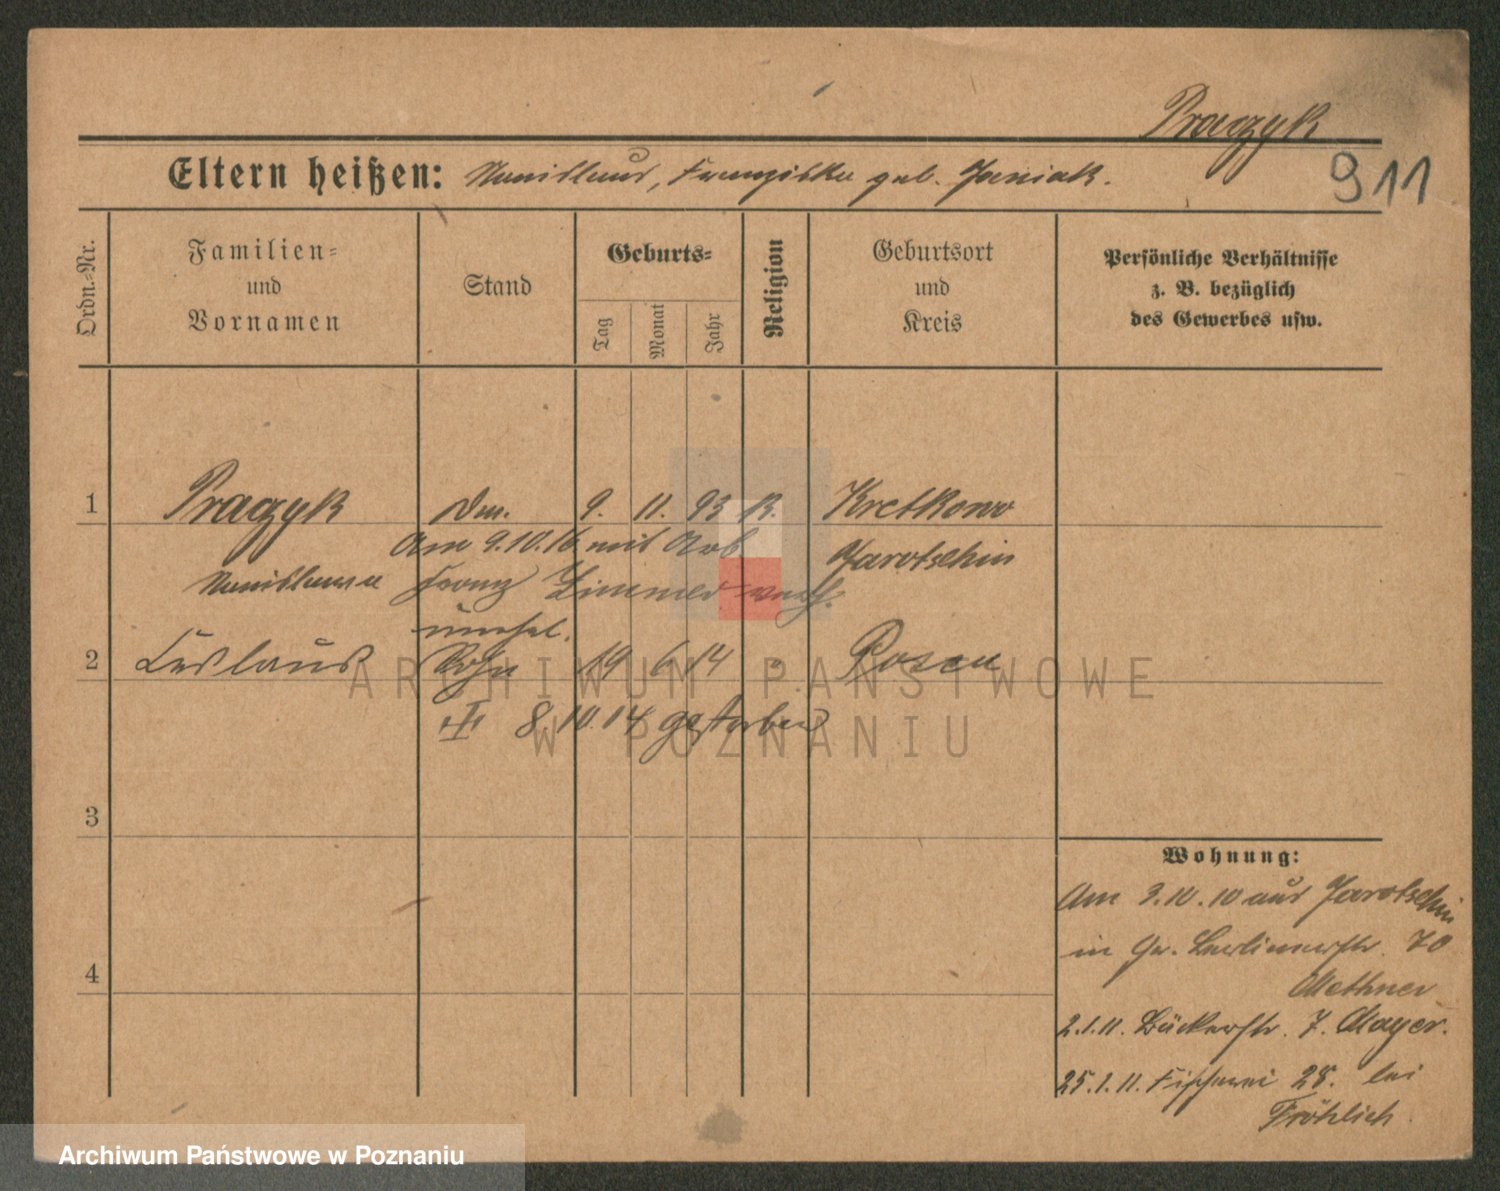 Pragzyk
911
Eltern heißen: Stanislaus, Franziska geb. Janiak.
Ordn.-Nr.
Familien-
und
Vornamen
Stand
Geburts-
Tag
Monat
Jahr
Religion
Geburtsort
und
Kreis
Persönliche Verhältnisse
z. B. bezüglich
des Gewerbes usw.
1 Pragzyk 9. 11. 93 k. Kretkowo
Am 9.10.16 mit Arb. Jarotschin
Stanislawa Franz verh.
unehel.
2 Sohn 19 6 14 " Posen
8.10.14 gestorben
3
4
Wohnung:
Am 3.10.10 aus Jarotschin
in Gr. Berlinerstr. 70
Methner
2.1.11. Bäckerstr. 7. Mayer.
25.1.11. Fischerei 28. bei
Fröhlich.
ARCHIWUM PAŃSTWOWE
W POZNANIU
Archiwum Państwowe w Poznaniu